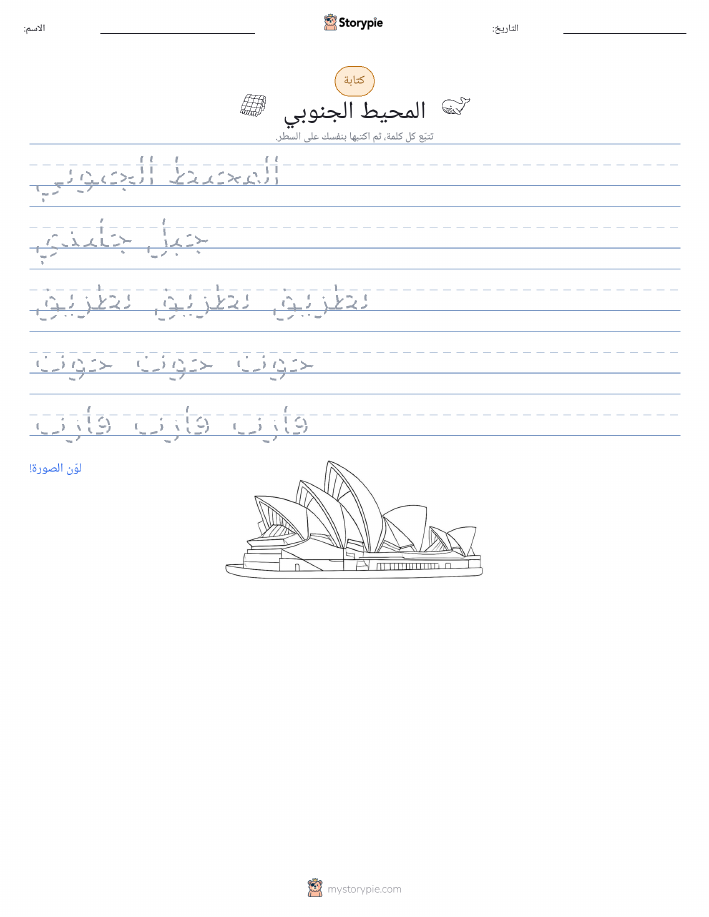 الاسم:
Storypie
التاريخ:
كتابة
المحيط الجنوبي
تتبّع كل كلمة، ثم اكتبها بنفسك على السطر.
المحيط الجنوبي
جبل جليدي
بطريق بطريق بطريق
حوت حوت حوت
قارب قارب قارب
لوّن الصورة!
mystorypie.com